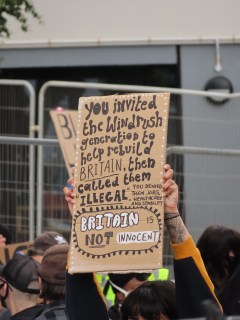 you invited
the Windrush
generation to
help rebuild
BRITAIN, then
called them
ILLEGAL."
YOU DENIED
THEM JOBS,
HEALTHCARE
AND
BRITAIN IS
NOT INNOCENT